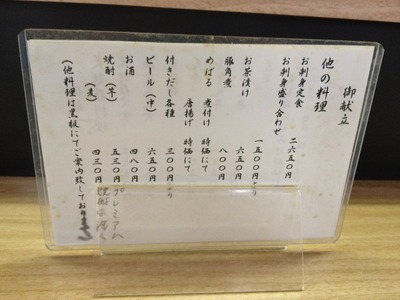 御献立
他の料理
お刺身定食 二六五〇円
お刺身盛り合わせ 一五〇〇円より
お茶漬け 六五〇円
豚角煮 八〇〇円
めばる 煮付け 時価にて
唐揚げ 時価にて
付きだし各種 三〇〇円より
ビール(中) 六五〇円
お酒 四八〇円
焼酎(芋) 五三〇円
(麦) 四三〇円
(他料理は黒板にてご案内致しております
プレミアム
焼酎